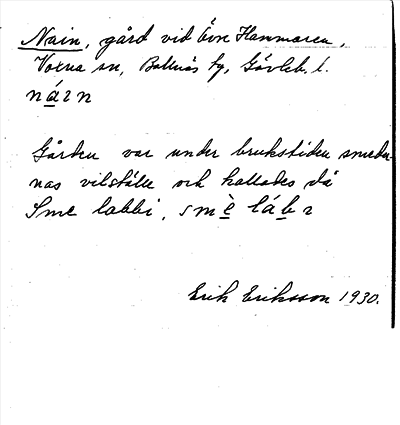 Nain, gård vid Övre Hammaren,
Voxna sn, Bollnäs tg, Gävleb. l.
náɪn
Gården var under brukstiden smeder
nas viloställe och kallades då
Sme labbi, smè lábɪ
Erik Eriksson 1930.